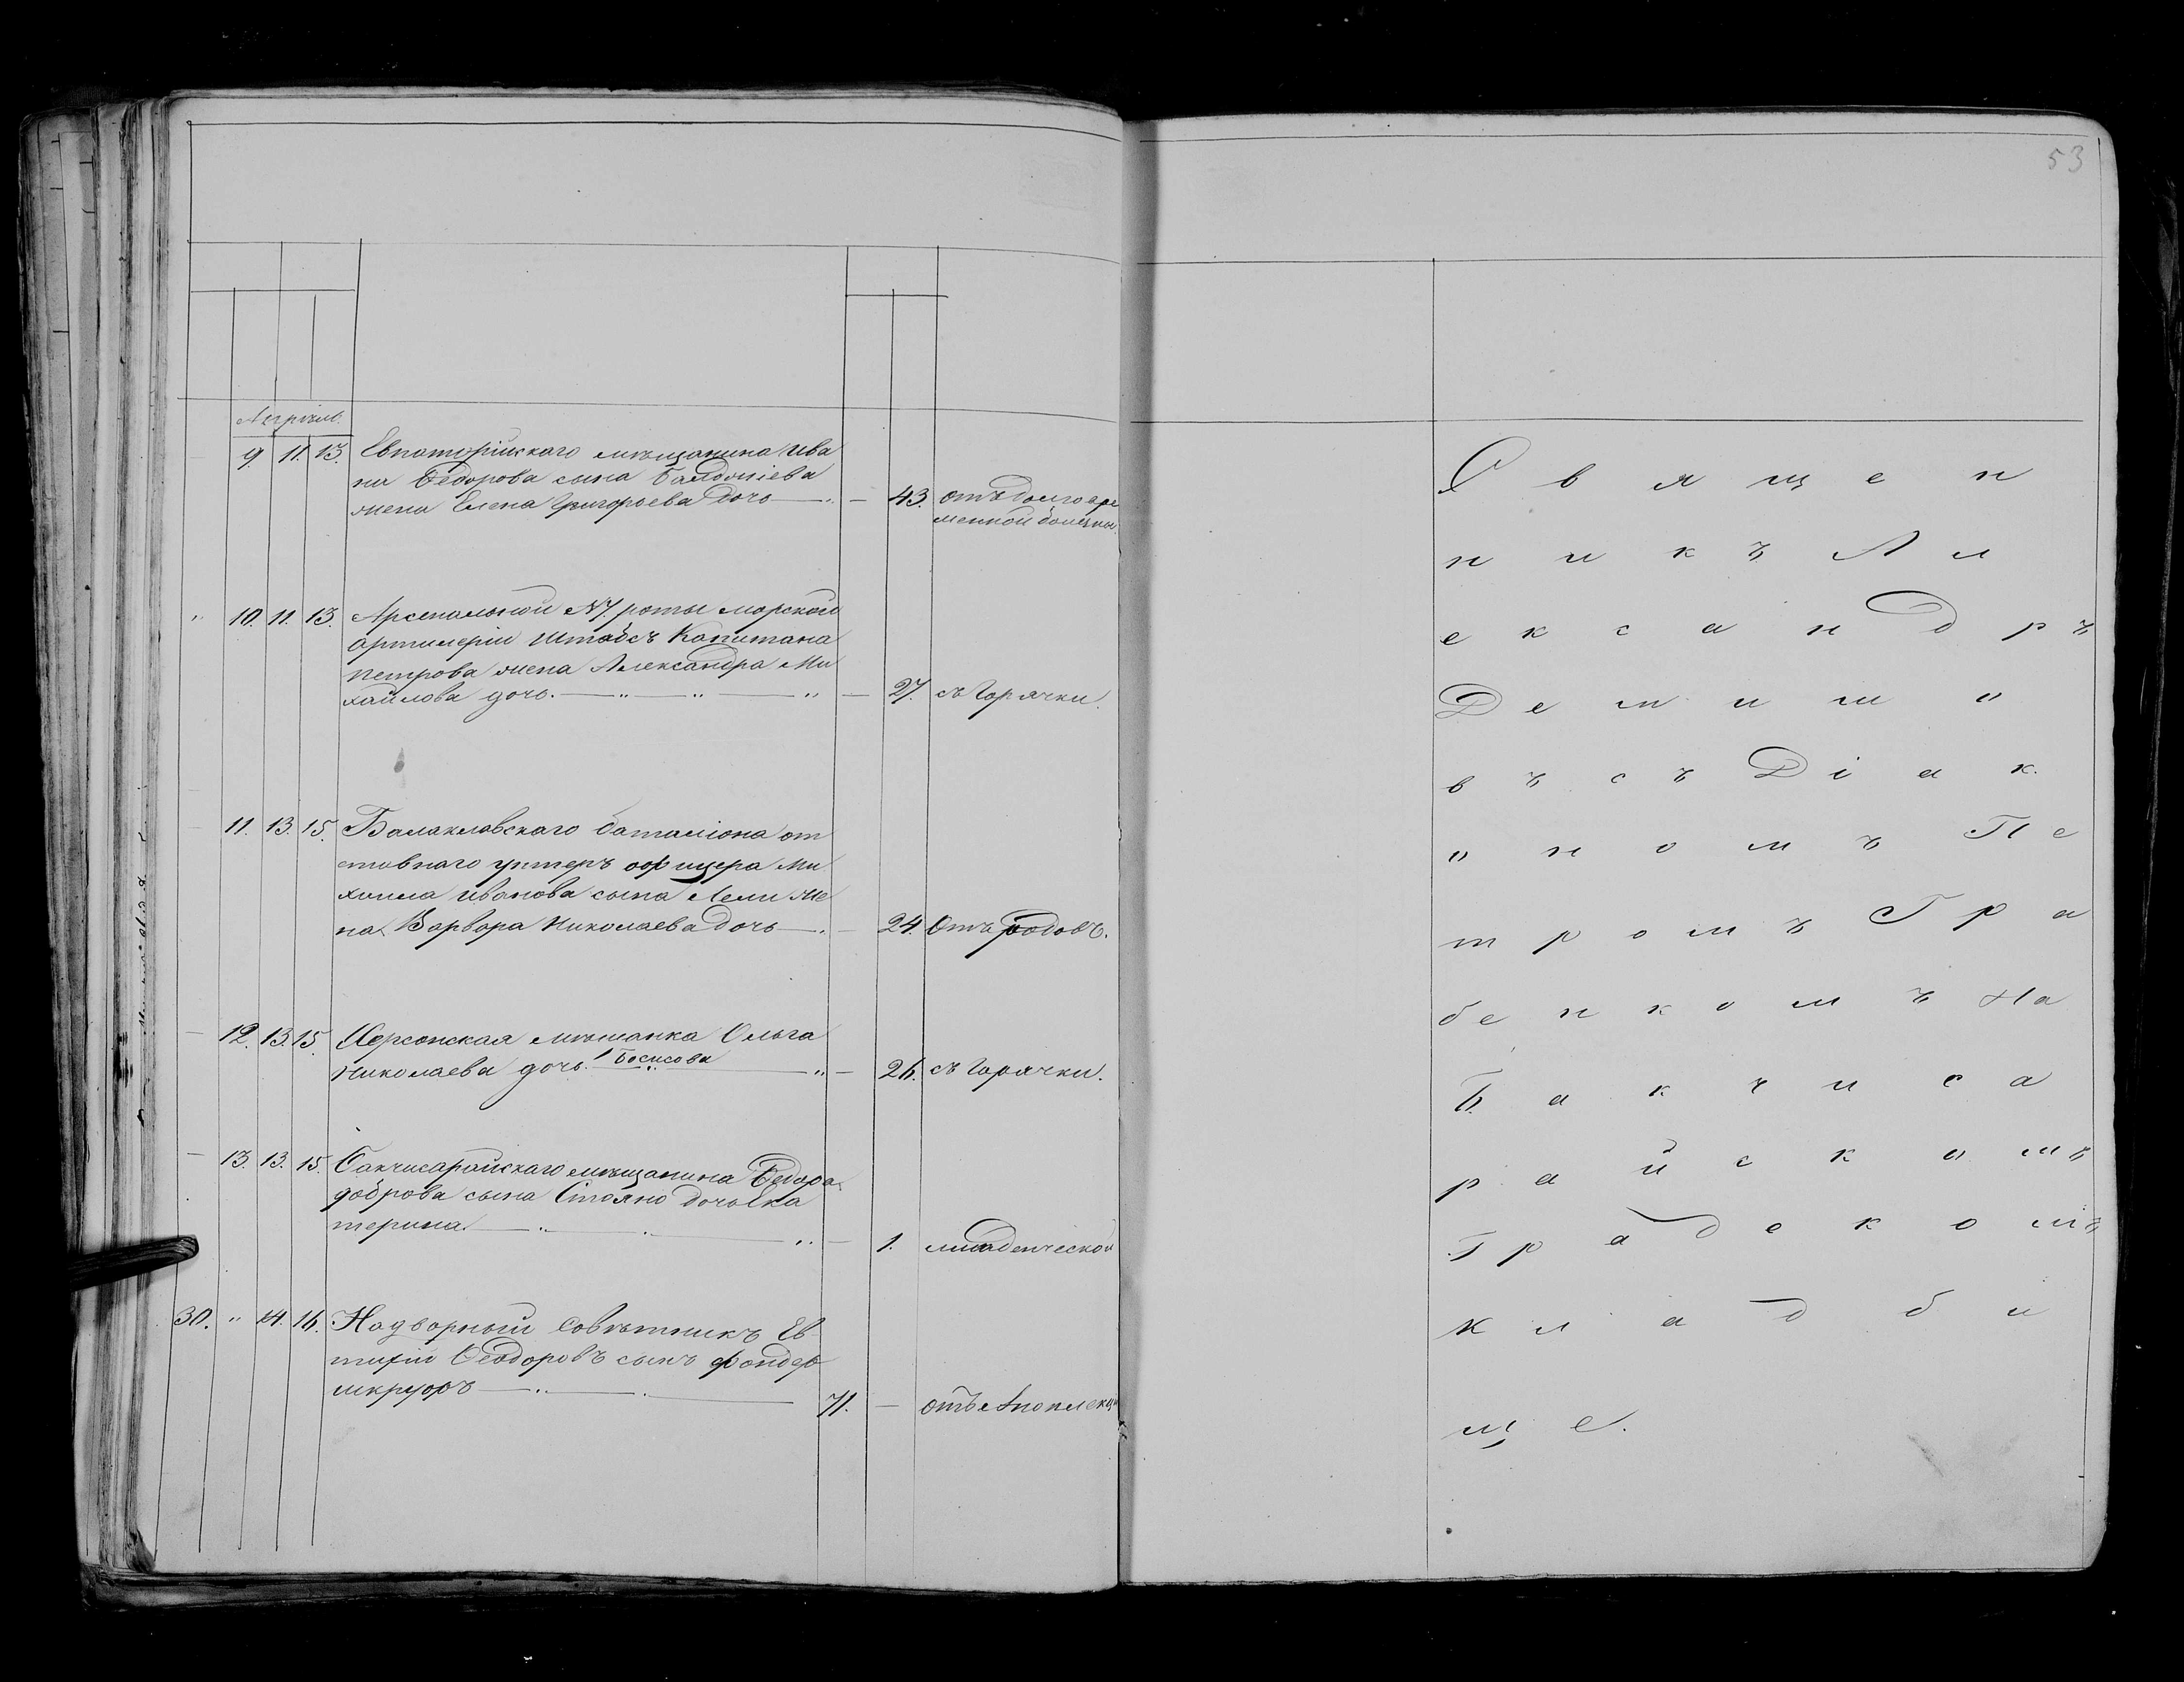 53
Апрѣль.
9. 11. 13. Евпаторійскаго мѣщанина Ива
на Ѳедорова сына
жена Елена Григорьева дочь — 43. отъ долговре
менной болѣзни.
10. 11. 13. Арсенальной №7 роты морской
артилеріи Штабсъ Капитана
Петрова жена Александра Ми
хайлова дочь. — 27. съ Горячки.
11. 13. 15. Балаклавскаго баталіона от
ставнаго унтеръ офицера Ми
хаила Иванова сына Лели же
на Варвара Николаева дочь — 24. Отъ родовъ.
12. 13. 15. Херсонская мѣщанка Ольга
Николаева дочь Борисова — 26. съ Горячки.
13. 13. 15. Бакчисарайскаго мѣщанина Ѳедора
сына Стояно дочь Ека
терина — 1. младенческой
30. " 14. 16. Надворный Совѣтникъ Ев
тихій Ѳеодоровъ сынъ фондер
71. — отъ Апоплекціи
Священ
никъ Ал
ександръ
Демило
въ съ Діак
ономъ Пе
тромъ Гра
бенкомъ На
Бакчиса
райскомъ
Градскомъ
кладби
ще.